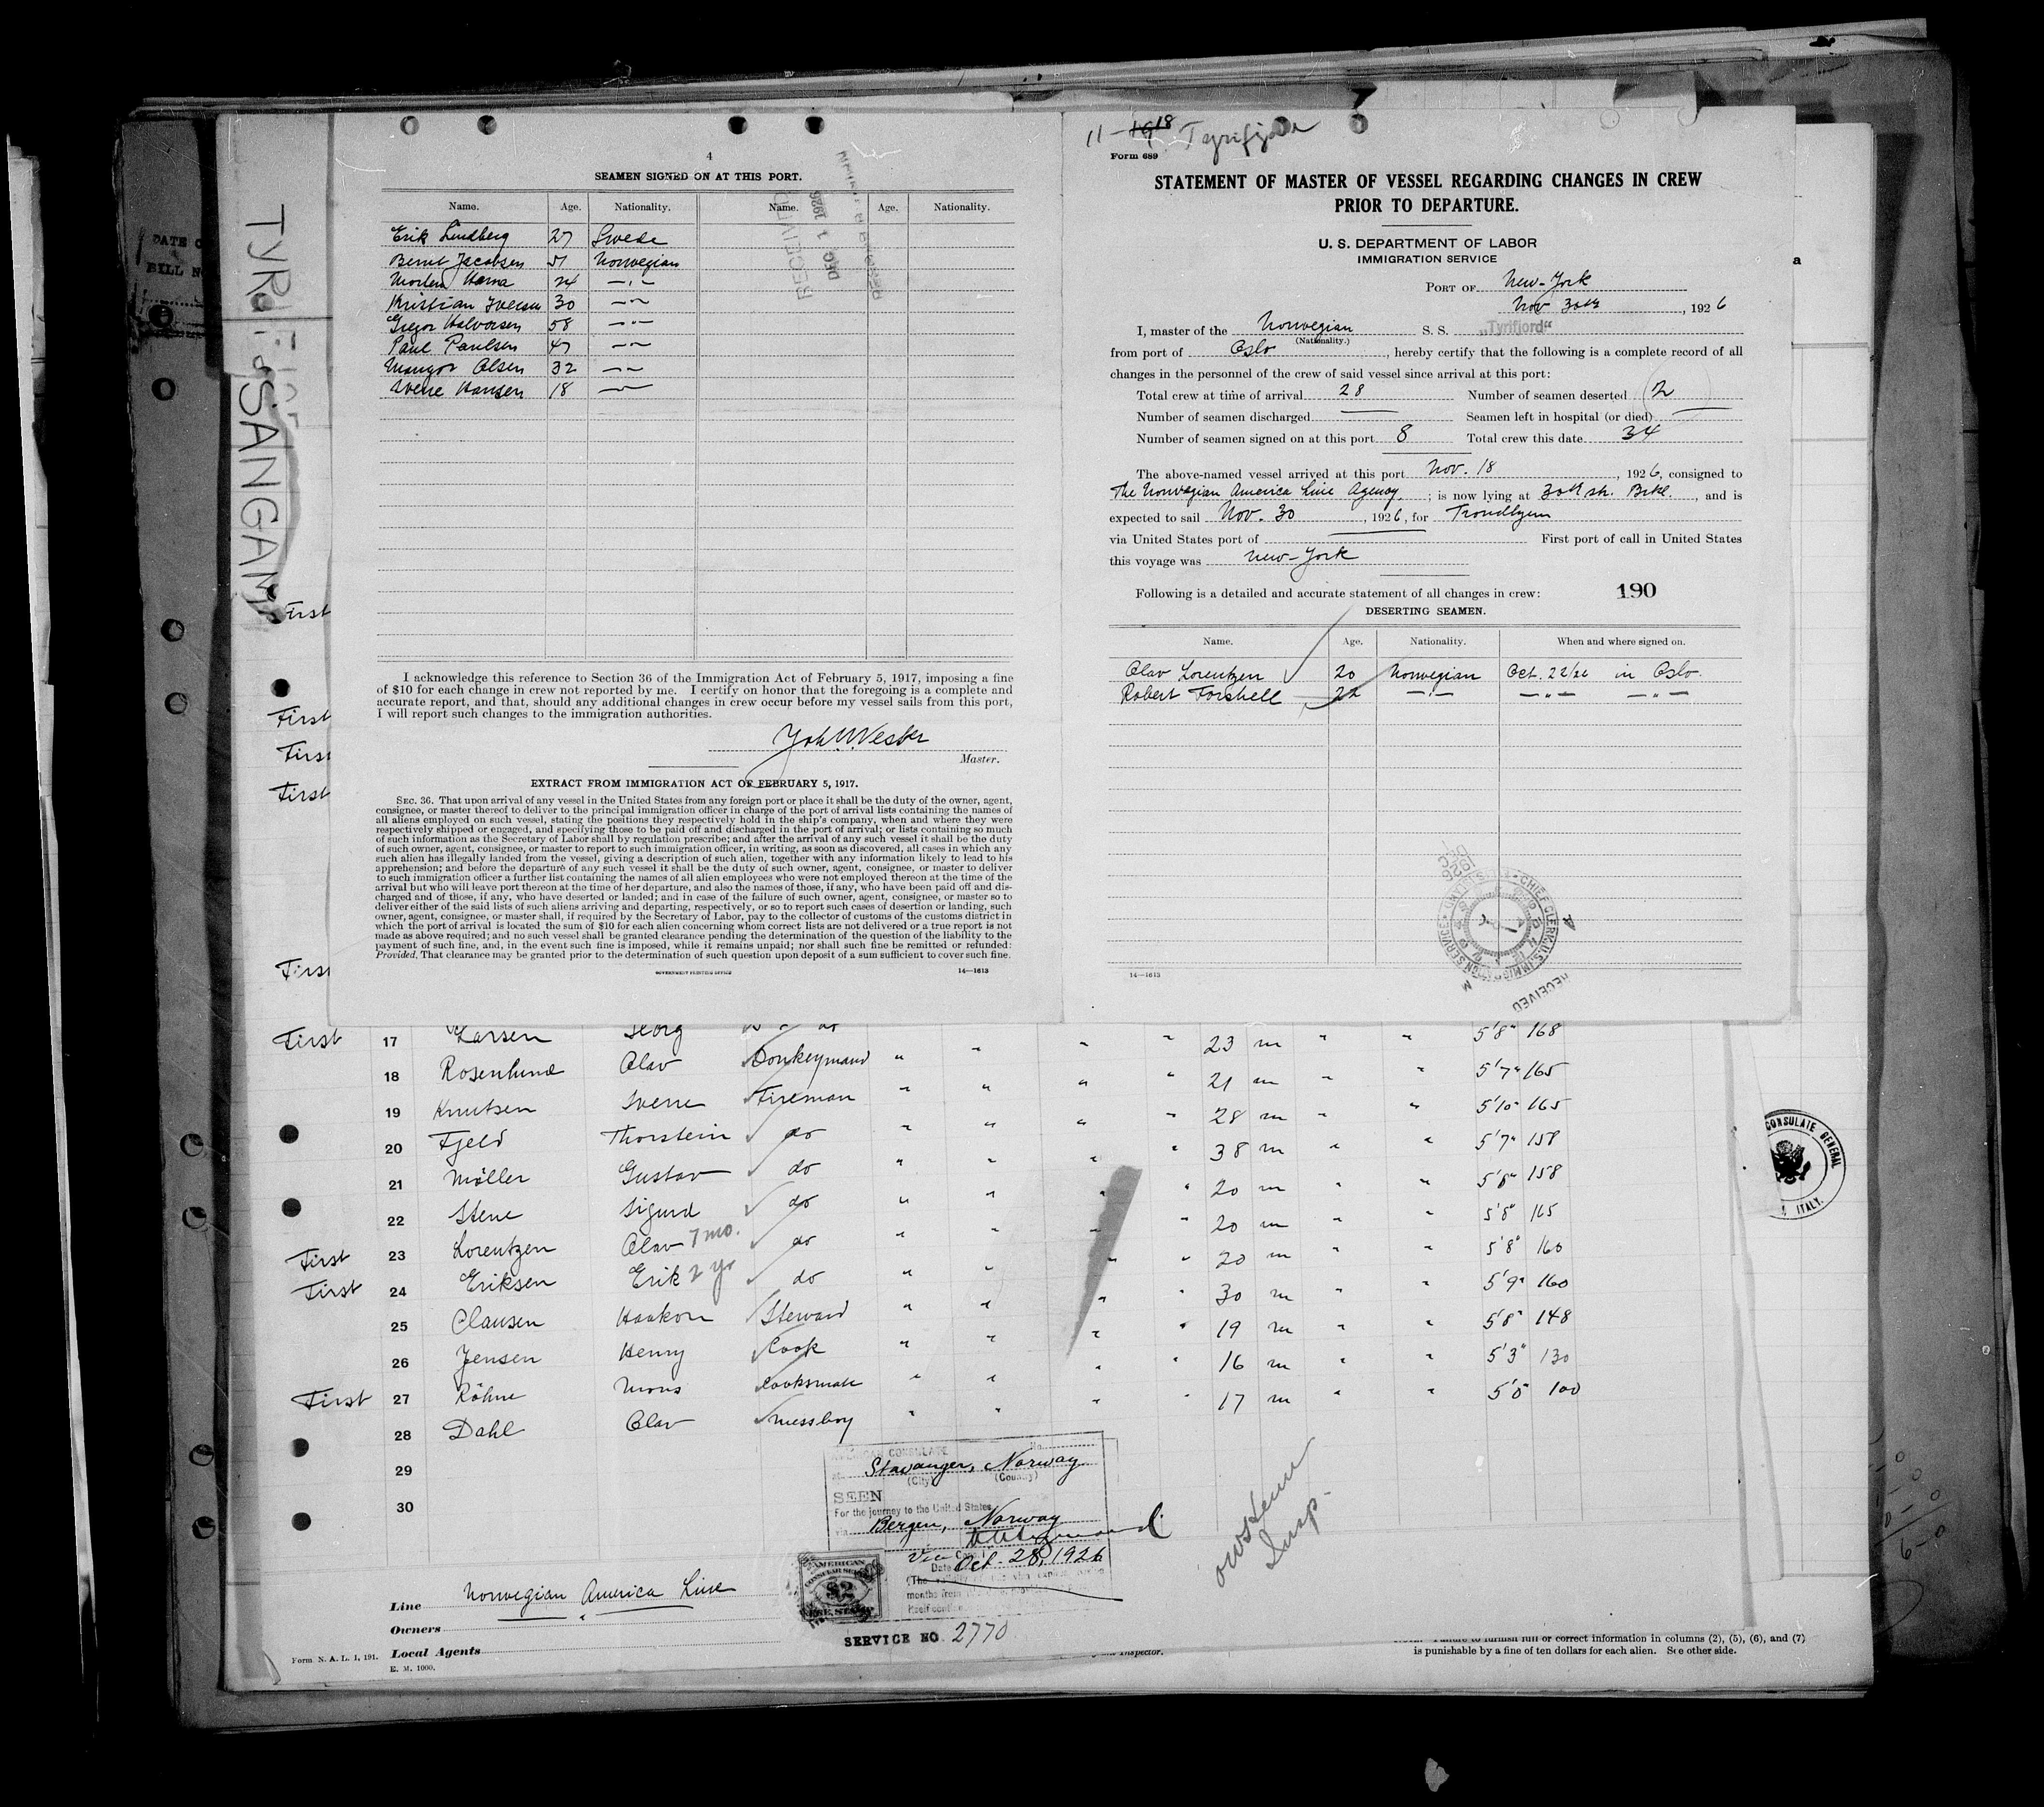 4
SEAMEN SIGNED ON AT THIS PORT.
Name. Age. Nationality. Name. Age. Nationality.
Erik Lindberg 27 Swede
Bernt Jacobsen 51 Norwegian
Morten Hama 24 —"—
Kristian Iversen 30 —"—
Gregor Halvorsen 58 —"—
Paul Paulsen 47 —"—
Mangor Olsen 32 —"—
Sverre Hansen 18 —"—
RECEIVED
DEC 1 1926
I acknowledge this reference to Section 36 of the Immigration Act of February 5, 1917, imposing a fine
of $10 for each change in crew not reported by me. I certify on honor that the foregoing is a complete and
accurate report, and that, should any additional changes in crew occur before my vessel sails from this port,
I will report such changes to the immigration authorities.
Master.
EXTRACT FROM IMMIGRATION ACT OF FEBRUARY 5, 1917.
SEC. 36. That upon arrival of any vessel in the United States from any foreign port or place it shall be the duty of the owner, agent,
consignee, or master thereof to deliver to the principal immigration officer in charge of the port of arrival lists containing the names of
all aliens employed on such vessel, stating the positions they respectively hold in the ship's company, when and where they were
respectively shipped or engaged, and specifying those to be paid off and discharged in the port of arrival; or lists containing so much
of such information as the Secretary of Labor shall by regulation prescribe; and after the arrival of any such vessel it shall be the duty
of such owner, agent, consignee, or master to report to such immigration officer, in writing, as soon as discovered, all cases in which any
such alien has illegally landed from the vessel, giving a description of such alien, together with any information likely to lead to his
apprehension; and before the departure of any such vessel it shall be the duty of such owner, agent, consignee, or master to deliver
to such immigration officer a further list containing the names of all alien employees who were not employed thereon at the time of the
arrival but who will leave port thereon at the time of her departure, and also the names of those, if any, who have been paid off and dis-
charged and of those, if any, who have deserted or landed; and in case of the failure of such owner, agent, consignee, or master so to
deliver either of the said lists of such aliens arriving and departing, respectively, or so to report such cases of desertion or landing, such
owner, agent, consignee, or master shall, if required by the Secretary of Labor, pay to the collector of customs of the customs district in
which the port of arrival is located the sum of $10 for each alien concerning whom correct lists are not delivered or a true report is not
made as above required; and no such vessel shall be granted clearance pending the determination of the question of the liability to the
payment of such fine, and, in the event such fine is imposed, while it remains unpaid; nor shall such fine be remitted or refunded:
Provided, That clearance may be granted prior to the determination of such question upon deposit of a sum sufficient to cover such fine.
GOVERNMENT PRINTING OFFICE 14—1613
11-18 Tyrifjord
Form 689
STATEMENT OF MASTER OF VESSEL REGARDING CHANGES IN CREW
PRIOR TO DEPARTURE.
U. S. DEPARTMENT OF LABOR
IMMIGRATION SERVICE
PORT OF New-York
Nov 30th, 1926
I, master of the Norwegian S. S. „Tyrifjord“
(Nationality.)
from port of Oslo, hereby certify that the following is a complete record of all
changes in the personnel of the crew of said vessel since arrival at this port:
Total crew at time of arrival 28 Number of seamen deserted 2
Number of seamen discharged — Seamen left in hospital (or died) —
Number of seamen signed on at this port 8 Total crew this date 34
The above-named vessel arrived at this port Nov. 18, 1926, consigned to
The Norwegian America Line Agency; is now lying at 30th str. Bkl., and is
expected to sail Nov. 30, 1926, for Trondhjem
via United States port of — First port of call in United States
this voyage was New-York
Following is a detailed and accurate statement of all changes in crew: 190
DESERTING SEAMEN.
Name. Age. Nationality. When and where signed on.
Olav Lorentzen 20 Norwegian Oct. 22/26 in Oslo
Robert Forshell 22 —"— —"— —"—
CHIEF CLERK U.S. IMMIGRATION SERVICE
RECEIVED
14—1613
TYRIFJORD
SANGAM
DATE O
BILL N
First
First
First
First
First
First 17 Larsen Georg 23 m 5'8" 168
18 Rosenlund Olav Donkeymand 21 m 5'7" 165
19 Knutsen Sverre Fireman 28 m 5'10" 165
20 Fjeld Thorstein do 38 m 5'7" 158
21 Møller Gustav do 20 m 5'8" 158
22 Stene Sigurd do 20 m 5'8" 165
First 23 Lorentzen Olav 7 mo. do 20 m 5'8" 160
First 24 Eriksen Erik 2 yr do 30 m 5'9" 160
25 Clausen Haakon Steward 19 m 5'8" 148
26 Jensen Henry Cook 16 m 5'3" 130
First 27 Röhne Mons Cooksmate 17 m 5'0" 100
28 Dahl Olav Messboy
29
30
AMERICAN CONSULATE No.
at Stavanger, Norway
(City) (County)
SEEN
For the journey to the United States
via Bergen, Norway
Vice Consul
Date Oct. 28, 1926
AMERICAN
CONSULAR SERVICE
$2
FEE STAMP
SERVICE NO. 2770
Insp.
Line Norwegian America Line
Owners
Local Agents
Form N. A. L. 1, 191.
E. M. 1000.
Inspector.
CONSULATE GENERAL
ITALY.
to furnish full or correct information in columns (2), (5), (6), and (7)
is punishable by a fine of ten dollars for each alien. See other side.